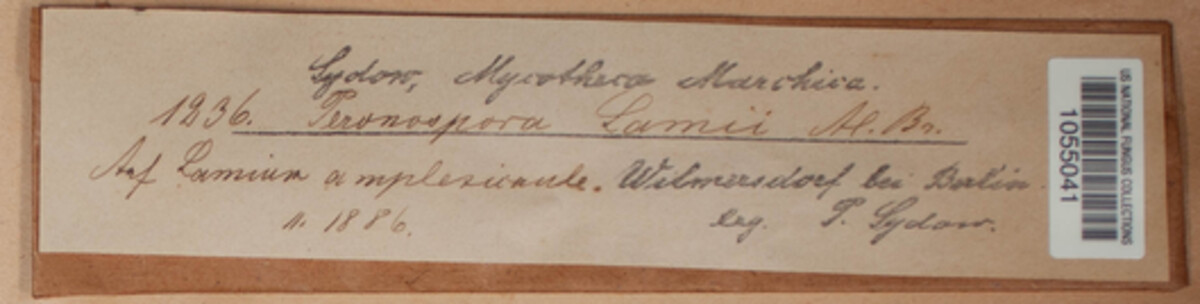 Sydow, Mycotheca Marchica.
1236. Peronospora Lamii Al. Br.
Auf Lamium amplexicaule. Wilmersdorf bei Berlin.
11. 1886.
leg. P. Sydow.
US NATIONAL FUNGUS COLLECTIONS
1055041